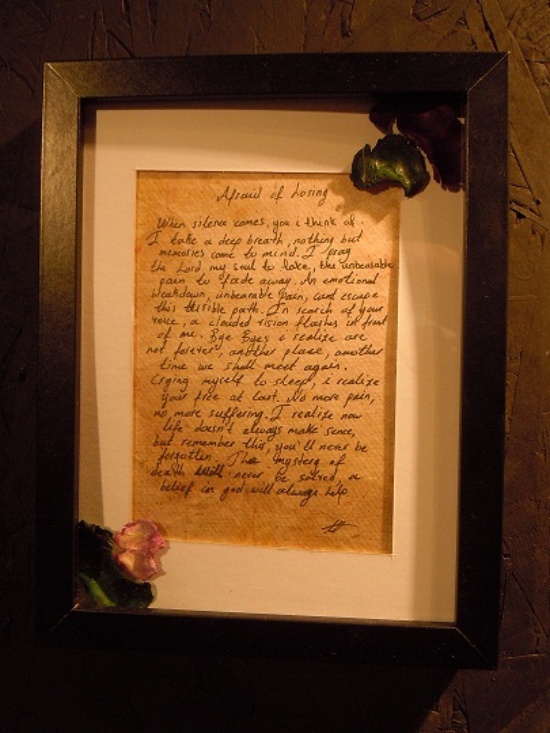 Afraid of Losing
When silence comes, you i think of.
I take a deep breath, nothing but
memories come to mind. I pray
the Lord my soul to take, the unbearable
pain to fade away. An emotional
breakdown, unbearable pain, cant escape
this terrible path. In search of your
voice, a clouded vision flashes in front
of me. Bye Byes i realize are
not forever, another place, another
time we shall meet again.
Crying myself to sleep, i realize
your free at last. No more pain,
no more suffering. I realize now
life doesn't always make sence,
but remember this, you'll never be
forgotten. The mystery of
death will never be solved, a
belief in god will always help.